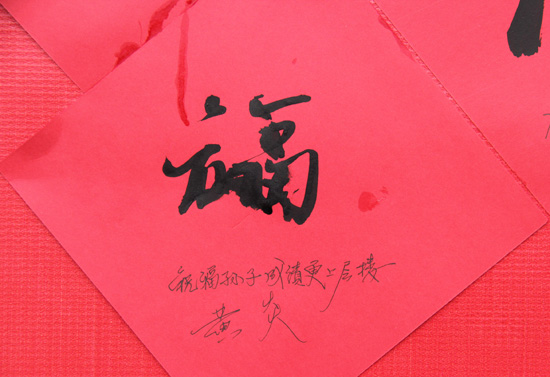 福
祝福孙子成绩更上层楼
黄炎